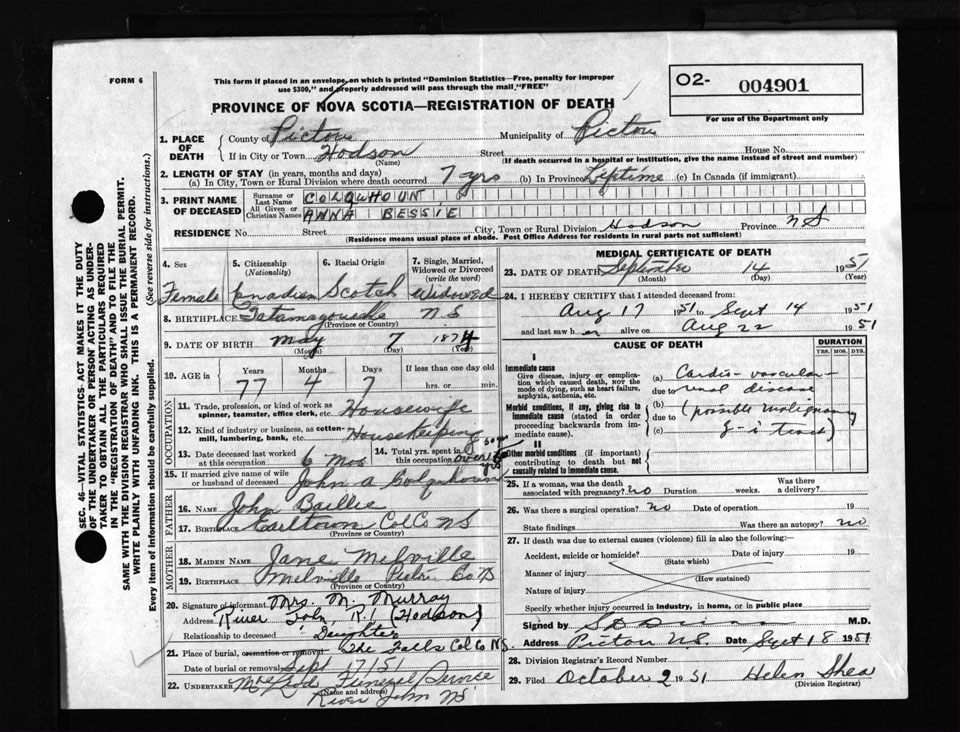 FORM 6
This form if placed in an envelope, on which is printed "Dominion Statistics—Free, penalty for improper
use $300," and properly addressed will pass through the mail "FREE"
O2- 004901
For use of the Department only
PROVINCE OF NOVA SCOTIA—REGISTRATION OF DEATH
1. PLACE OF DEATH
County of Pictou Municipality of Pictou
If in City or Town Hodson Street House No.
(Name) (If death occurred in a hospital or institution, give the name instead of street and number)
2. LENGTH OF STAY (in years, months and days)
(a) In City, Town or Rural Division where death occurred 7 yrs (b) In Province Lifetime (c) In Canada (if immigrant)
3. PRINT NAME OF DECEASED
Surname or Last Name COLQUHOUN
All Given or Christian Names ANNA BESSIE
RESIDENCE No. Street City, Town or Rural Division Hodson Province NS
(Residence means usual place of abode. Post Office Address for residents in rural parts not sufficient)
4. Sex Female
5. Citizenship (Nationality) Canadian
6. Racial Origin Scotch
7. Single, Married, Widowed or Divorced (write the word) Widowed
8. BIRTHPLACE Tatamagouche N.S
(Province or Country)
9. DATE OF BIRTH May 7 1874
(Month) (Day) (Year)
10. AGE in Years Months Days If less than one day old
77 4 7 hrs. or min.
OCCUPATION
11. Trade, profession, or kind of work as spinner, teamster, office clerk, etc. Housewife
12. Kind of industry or business, as cotton-mill, lumbering, bank, etc. Housekeeping
13. Date deceased last worked at this occupation 6 mos
14. Total yrs. spent in this occupation over
15. If married give name of wife or husband of deceased John A Colquhoun
FATHER
16. Name John Baillie
17. Birthplace Earltown Col Co NS
(Province or Country)
MOTHER
18. MAIDEN NAME Jane Melville
19. BIRTHPLACE Melville Pictou Co
(Province or Country)
20. Signature of informant Mrs. M. Murray
Address River John, R.1 (Hodson)
Relationship to deceased Daughter
21. Place of burial, cremation or removal The Falls Col Co NS
Date of burial or removal Sept 17/51
22. UNDERTAKER Funeral Service
(Name and address)
River John NS
MEDICAL CERTIFICATE OF DEATH
23. DATE OF DEATH September 14 1951
(Month) (Day) (Year)
24. I HEREBY CERTIFY that I attended deceased from:
Aug 17 1951 to Sept 14 1951
and last saw h er alive on Aug 22 1951
CAUSE OF DEATH
DURATION
YRS. MOS. DYS.
I
Immediate cause
Give disease, injury or complication which caused death, NOT the mode of dying, such as heart failure, asphyxia, asthenia, etc.
(a) Cardio-vascular-
due to renal disease
Morbid conditions, if any, giving rise to immediate cause (stated in order proceeding backwards from immediate cause).
(b)
due to (possible malignancy
(c) g-i tract)
II
Other morbid conditions (if important) contributing to death but not causally related to immediate cause.
25. If a woman, was the death associated with pregnancy? no Duration weeks. Was there a delivery?
26. Was there a surgical operation? no Date of operation 19
State findings Was there an autopsy? no
27. If death was due to external causes (violence) fill in also the following:—
Accident, suicide or homicide? Date of injury 19
(State which)
Manner of injury
(How sustained)
Nature of injury
Specify whether injury occurred in industry, in home, or in public place
Signed by M.D.
Address Pictou N.S. Date Sept 18 1951
28. Division Registrar's Record Number
29. Filed October 2 1951 Helen Shea
(Division Registrar)
SEC. 46—VITAL STATISTICS ACT, MAKES IT THE DUTY
OF THE UNDERTAKER OR PERSON ACTING AS UNDER-
TAKER TO OBTAIN ALL THE PARTICULARS REQUIRED
IN THE "REGISTRATION OF DEATH" AND TO FILE THE
SAME WITH THE DIVISION REGISTRAR WHO SHALL ISSUE THE BURIAL PERMIT.
WRITE PLAINLY WITH UNFADING INK. THIS IS A PERMANENT RECORD.
Every item of information should be carefully supplied. (See reverse side for instructions.)